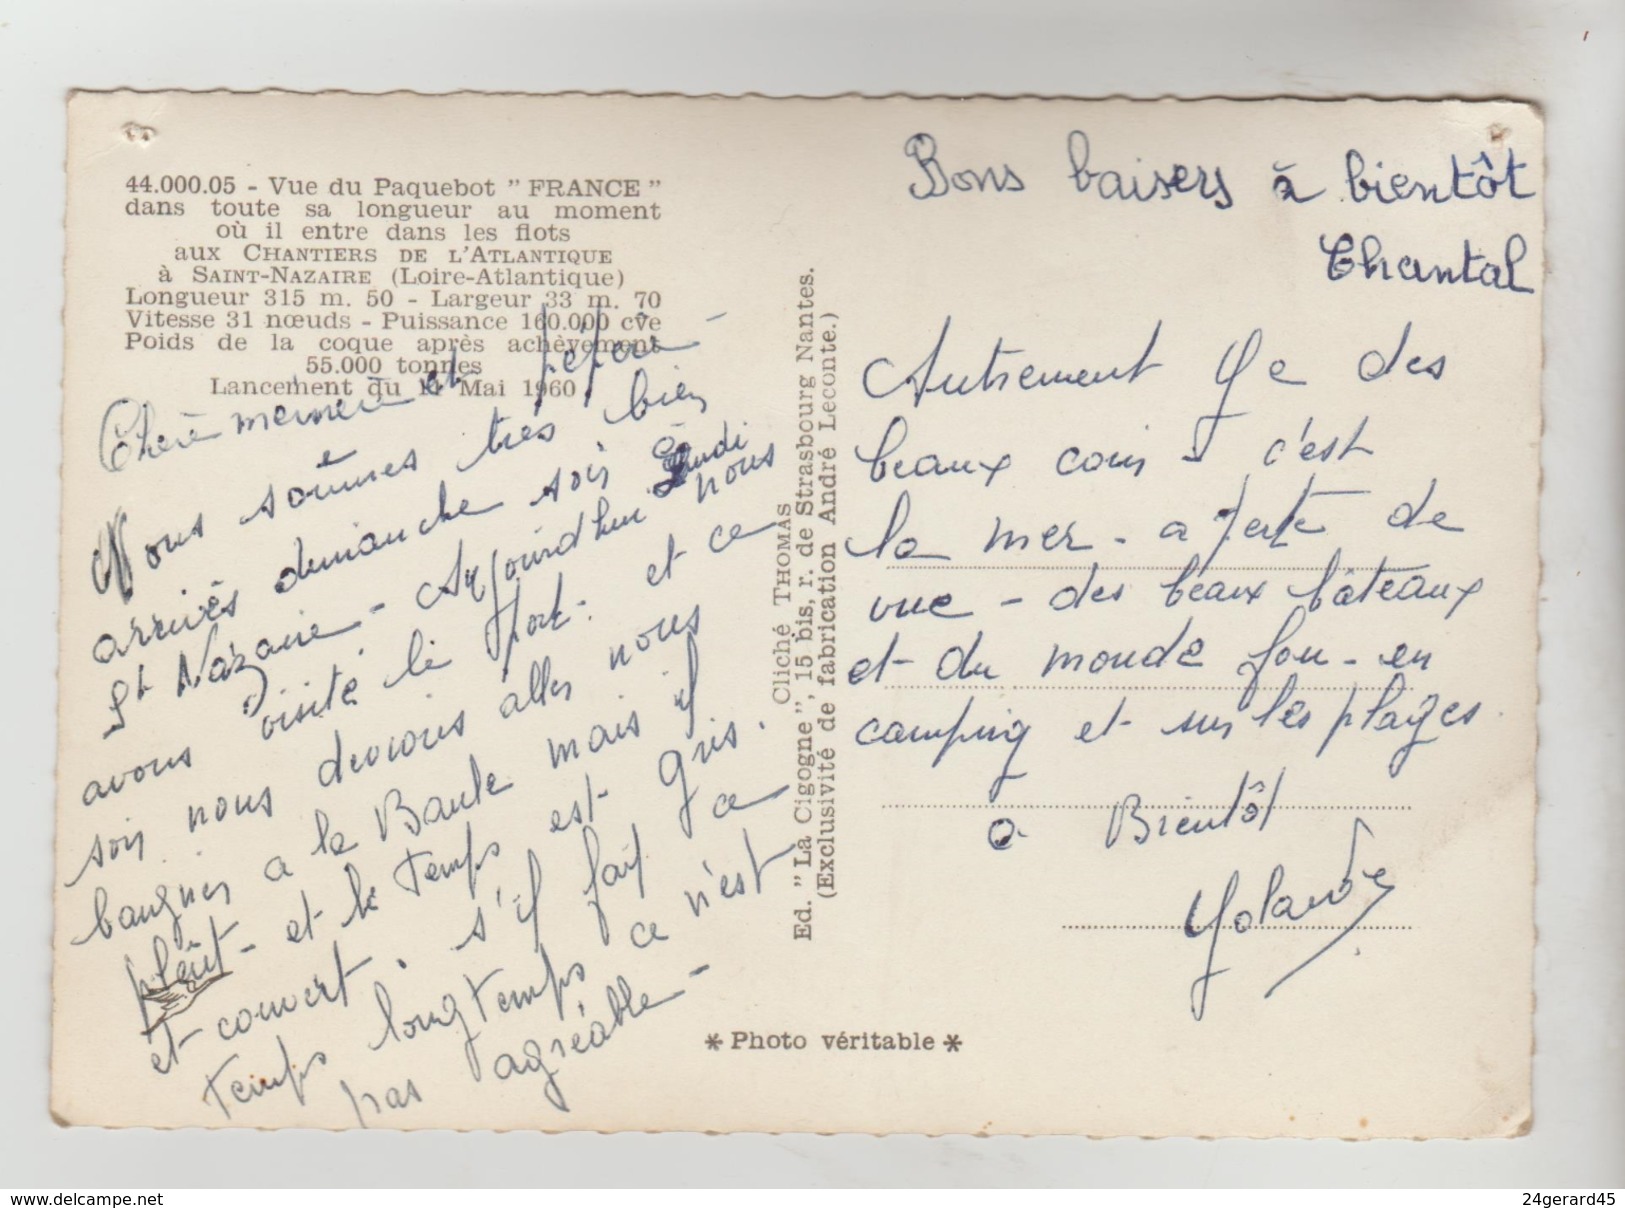 44.000.05 - Vue du Paquebot " FRANCE "
dans toute sa longueur au moment
où il entre dans les flots
aux CHANTIERS DE L'ATLANTIQUE
à SAINT-NAZAIRE (Loire-Atlantique)
Longueur 315 m. 50 - Largeur 33 m. 70
Vitesse 31 nœuds - Puissance 160.000 cve
Poids de la coque après achèvement
55.000 tonnes
Lancement du 11 Mai 1960
Chère mémère et pépère -
Nous sommes très bien
arrivés dimanche soir à
St Nazaire - Aujourd'hui Lundi nous
avons visité le port - et ce
soir nous devions aller nous
baigner a la Baule mais il
pleût - et le temps est gris.
et couvert. s'il fait ce
temps longtemps ce n'est
pas agréable -
Cliché THOMAS
Ed. " La Cigogne ", 15 bis, r. de Strasbourg Nantes.
(Exclusivité de fabrication André Leconte.)
Bons baisers à bientôt
Chantal
Autrement Y a des
beaux coins - c'est
la mer - a perte de
vue - des beaux bâteaux
et du monde fou - en
camping et sur les plages.
a Bientôt
Yolande
* Photo véritable *
www.delcampe.net
24gerard45